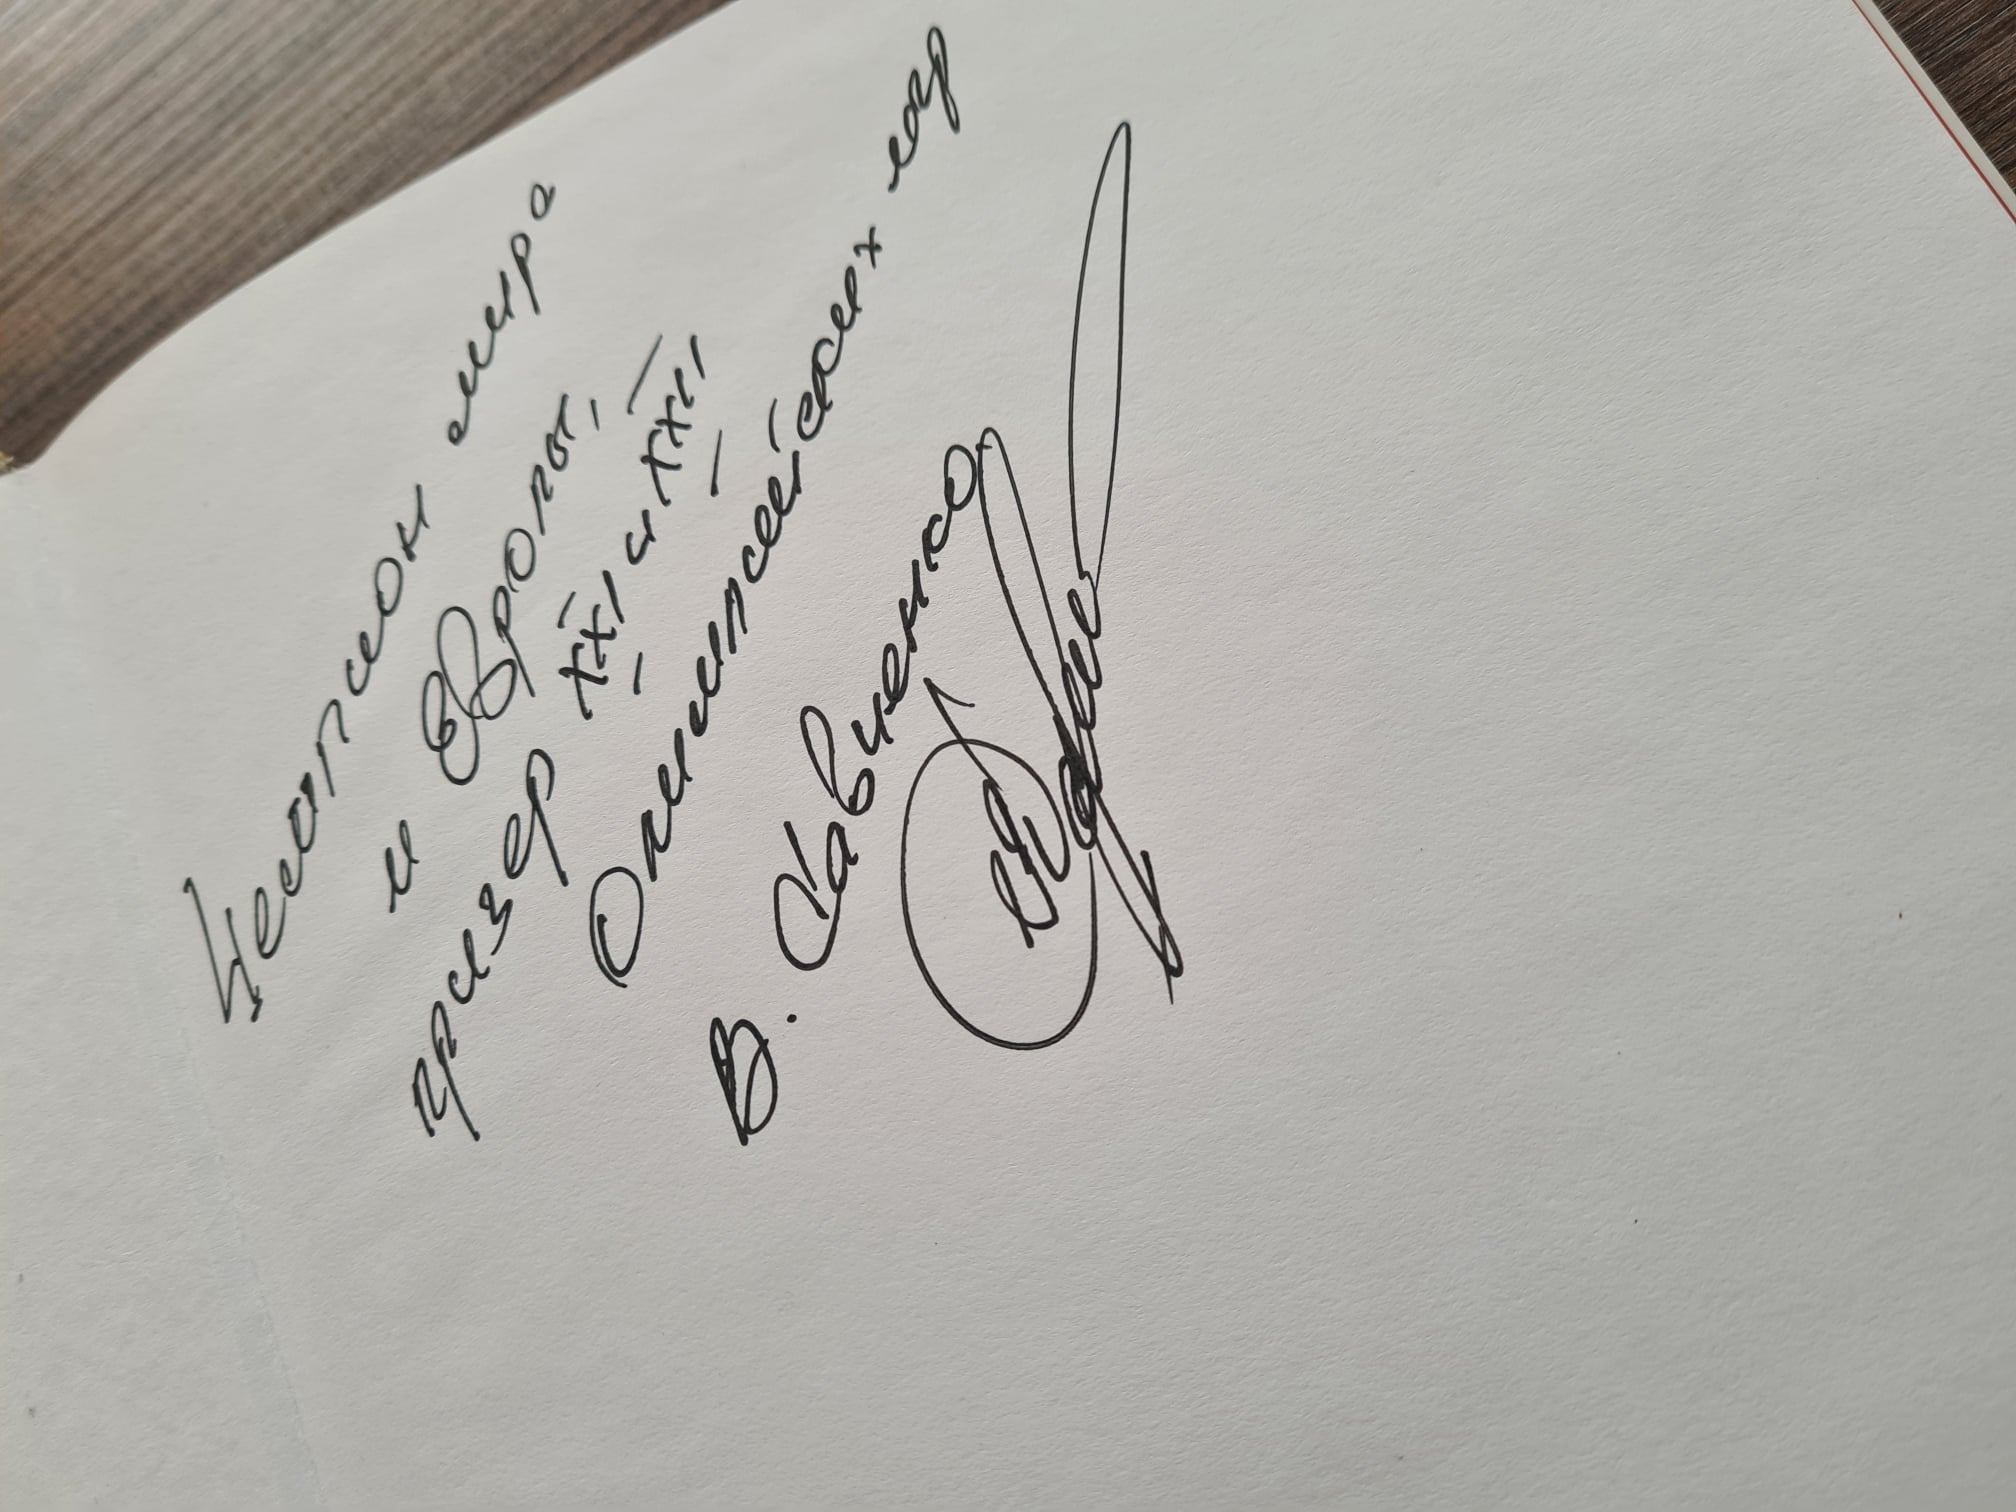 Чемпион мира
и Европы,
призер XXI и XXII
Олимпийских игр
В. Савченко